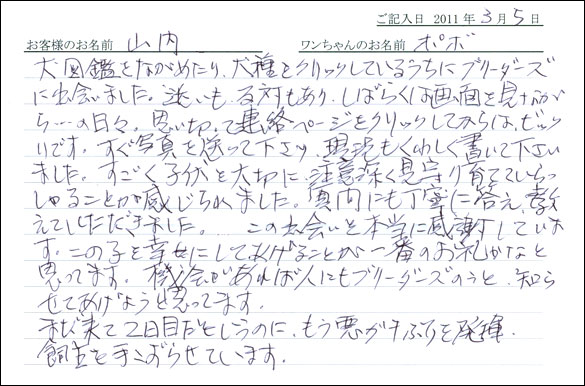 ご記入日 2011年3月5日
お客様のお名前 山内 ワンちゃんのお名前 ポポ
犬図鑑をながめたり、犬種をクリックしているうちにブリーダーズ
に出会いました。迷いも反対もあり、しばらくは画面を見ながら
ら…の日々。思い切って連絡ページをクリックしてからは、ビック
リです。すぐ写真を送って下さり、現況もくわしく書いて下さい
ました。すごく子犬を大切に、注意深く見守り育てていらっ
しゃることが感じられました。質問にも丁寧に答え、教
えていただきました。 この出会いを本当に感謝していま
す。この子を幸せにしてあげることが一番のお礼かなと
思ってます。機会があれば人にもブリーダーズのこと、知ら
せてあげようと思ってます。
まだ来て2日目だというのに、もう悪ガキぶりを発揮、
飼主を手こずらせています。